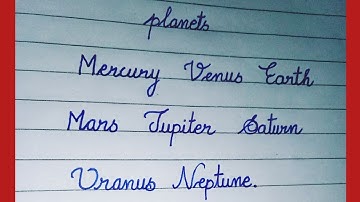 planets
Mercury Venus Earth
Mars Jupiter Saturn
Uranus Neptune.